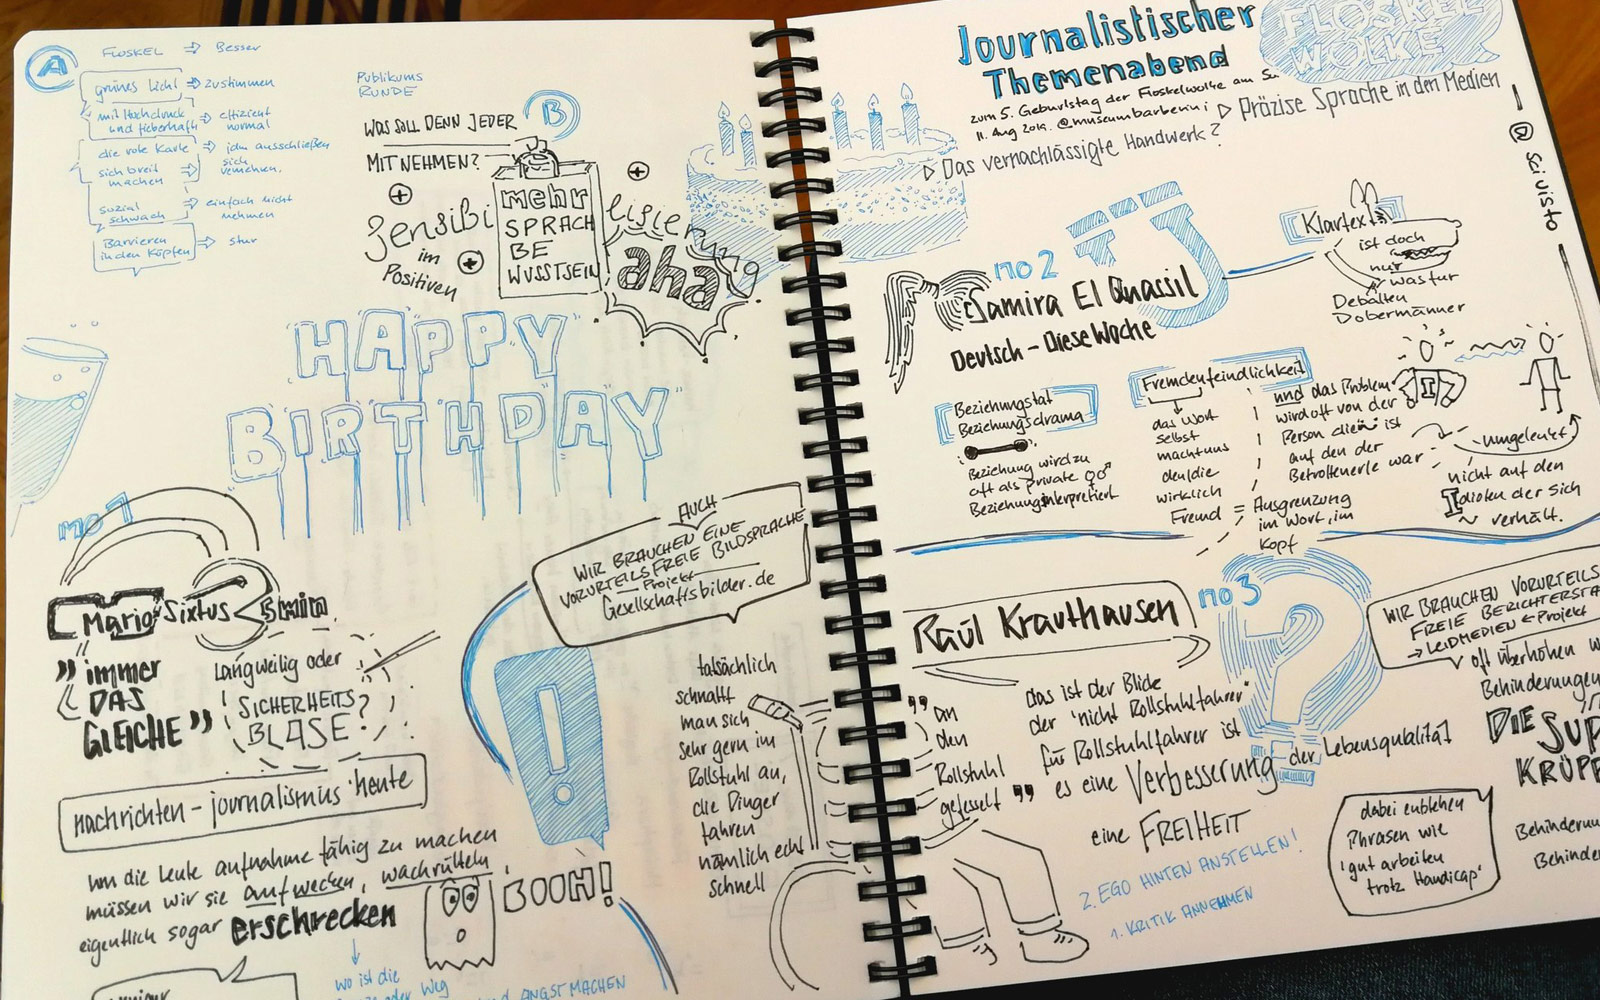 A
FLOSKEL ⇒ Besser
grünes Licht ⇒ zustimmen
mit Hochdruck und fieberhaft → effizient normal
die rote Karte ⇒ jdn ausschließen
sich breit machen ⇒ sich vermehren,
sozial schwach ⇒ einfach nicht nehmen
Barrieren in den Köpfen ⇒ stur
PUBLIKUMS
RUNDE
B
WAS SOLL DENN JEDER
MITNEHMEN?
mehr
SPRACH
BE
WUSSTSEIN
Sensibi
lisierung
im
Positiven
aha
HAPPY
BIRTHDAY
no 1
Mario Sixtus
"immer
DAS
GLEICHE"
Langweilig oder
SICHERHEITS?
BLASE?
nachrichten - journalismus heute
um die Leute aufnahmefähig zu machen
müssen wir sie aufwecken, wachrütteln,
eigentlich sogar erschrecken
BOOH!
wo ist die
oder Weg
ANGST MACHEN
AUCH
WIR BRAUCHEN EINE
VORURTEILSFREIE BILDSPRACHE
Projekt
Gesellschaftsbilder.de
tatsächlich
schnallt
man sich
sehr gern im
Rollstuhl an,
die Dinger
fahren
nämlich echt
schnell
Journalistischer
Themenabend
FLOSKEL
WOLKE
zum 5. Geburtstag der Floskelwolke am
11. Aug 2019. @museumbarberini
▷ Präzise Sprache in den Medien
▷ Das vernachlässigte Handwerk?
@sci_visto
no 2
Samira El Ouassil
Deutsch - Diese Woche
Klartext
ist doch
nur
was für
Debatten
Dobermänner
Beziehungstat
Beziehungsdrama
Beziehung wird zu
oft als private
Beziehung interpretiert
Fremdenfeindlichkeit
das Wort
selbst
macht uns
den/die
wirklich
Fremd
= Ausgrenzung
im Wort, im
Kopf
und das Problem
wird oft von der
Person die
ist
auf den der
Betroffene/r war
I
umgelenkt
nicht auf den
Idioten der sich
~ verhält.
no 3
Raúl Krauthausen
"an
den
Rollstuhl
gefesselt"
das ist der Blick
der 'nicht Rollstuhlfahrer'
für Rollstuhlfahrer ist
es eine Verbesserung der Lebensqualität
eine FREIHEIT
2. EGO HINTEN ANSTELLEN!
1. KRITIK ANNEHMEN
WIR BRAUCHEN VORURTEILS
FREIE BERICHTERSTA
→ LEIDMEDIEN ← Projekt
oft überhöhen w
Behinderungen
DIE SUP
KRÜPP
dabei entstehen
Phrasen wie
'gut arbeiten
trotz Handicap'
Behinderun
Behinder